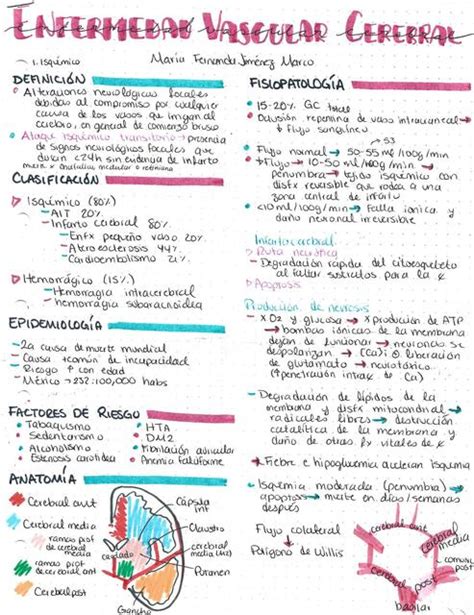 ENFERMEDAD VASCULAR CEREBRAL
1. Isquémico
María Fernanda Jiménez Marco
DEFINICIÓN
Alteraciones neurológicas focales
debidas al compromiso por cualquier
causa de los vasos que irrigan al
cerebro, en general de comienzo brusco
Ataque isquémico transitorio → presencia
de signos neurológicos focales que
duran <24h sin evidencia de infarto
medular o retiniana
CLASIFICACIÓN
Isquémico (80%)
- AIT 20%
- Infarto cerebral 80%
- Enfx pequeño vaso 20%
- Aterosclerosis 44%
- Cardioembolismo 21%
Hemorrágico (15%)
- Hemorragia intracerebral
- hemorragia subaracnoidea
EPIDEMIOLOGÍA
- 2a causa de muerte mundial
- Causa +común de incapacidad
- Riesgo ↑ con edad
- México → 232:100,000 habs
FACTORES DE RIESGO
Tabaquismo
Sedentarismo
Alcoholismo
Estenosis carotídea
HTA
DM2
Fibrilación auricular
Anemia falciforme
ANATOMÍA
Cerebral ant
Cerebral media
ramas prof de cerebral media
ramas prof de cerebral ant
Cerebral post
Cápsula int
Claustro
cerebral media
Putamen
caudado
Gancho
FISIOPATOLOGÍA
15-20% GC total
Oclusión repentina de vaso intracraneal →
↓ flujo sanguíneo
53
Flujo normal → 50-55 ml/100g/min
↓Flujo → 10-50 ml/100g/min →
penumbra → tejido isquémico con
disfx reversible que rodea a una
zona central de infarto
<10ml/100g/min → falla iónica y
daño neuronal irreversible
Infarto cerebral
Ruta necrótica
- Degradación rápida del citoesqueleto
al faltar sustratos para la
Apoptosis
Producción de necrosis
- X O2 y glucosa → X producción de ATP
→ bombas iónicas de la membrana
dejan de funcionar → neuronas se
despolarizan → ↑[Ca] ∴ liberación
de glutamato → neurotóxico
(↑penetración intrax de Ca)
- Degradación de lípidos de la
membrana y disfx mitocondrial →
radicales libres → destrucción
catalítica de la membrana y
daño de otras fx vitales de x
Fiebre e hipoglucemia aceleran isquemia
- Isquemia moderada (penumbra) →
apoptosis → muerte en días/semanas
después
Flujo colateral
Polígono de Willis
cerebral ant
cerebral media
comunicante
cerebral post
basilar